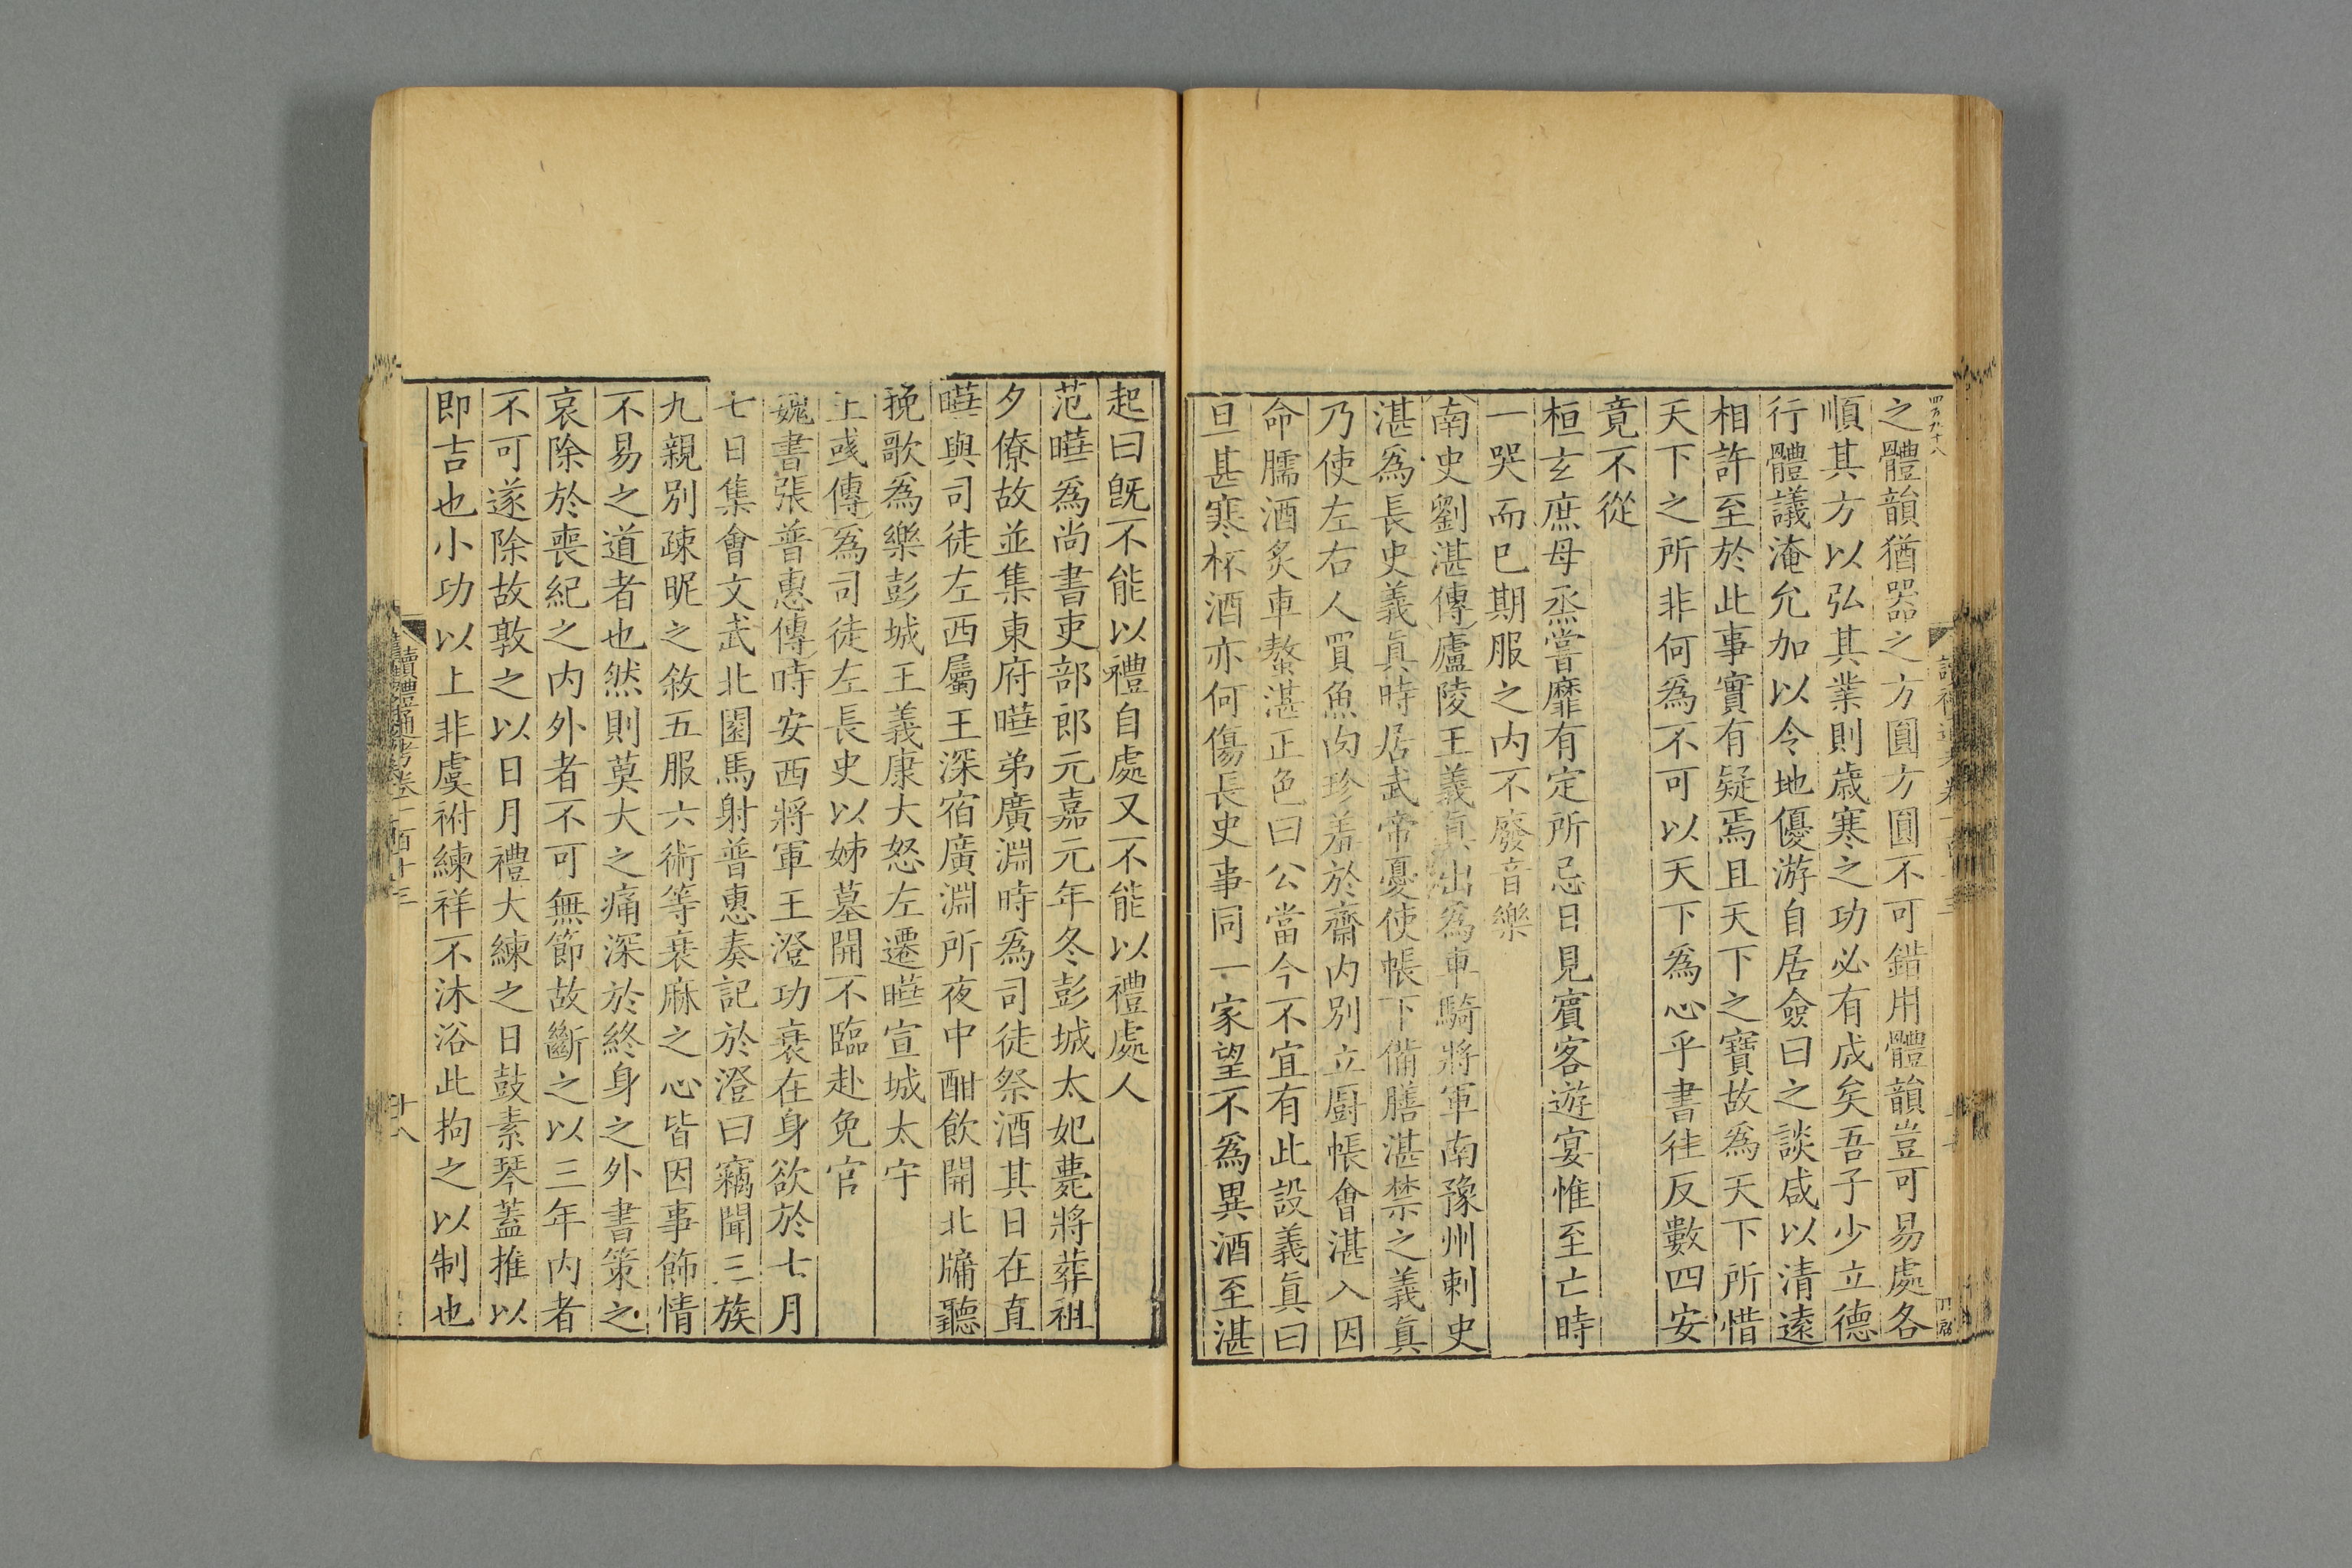 四百九十八
之體韻猶器之方圓方圓不可錯用體韻豈可易處各
順其方以弘其業則歲寒之功必有成矣吾子少立德
行體議淹允加以令地優游自居僉曰之談咸以清遠
相許至於此事實有疑焉且天下之寶故為天下所惜
天下之所非何爲不可以天下爲心乎書往反數四安
竟不從
桓玄庶母烝嘗靡有定所忌日見賓客遊宴惟至亡時
一哭而已期服之内不廢音樂
南史劉湛傳廬陵王義真出爲車騎將軍南豫州刺史
湛爲長史義真時居武帝憂使帳下備膳湛禁之義真
乃使左右人買魚肉珍羞於齋内別立厨帳會湛入因
命臑酒炙車螯湛正色曰公當今不宜有此設義真曰
旦甚寒杯酒亦何傷長史事同一家望不爲異酒至湛
起曰既不能以禮自處又不能以禮處人
范曄爲尚書吏部郎元嘉元年冬彭城太妃薨將葬祖
夕僚故並集東府曄弟廣淵時爲司徒祭酒其日在直
曄與司徒左西屬王深宿廣淵所夜中酣飲開北牖聽
挽歌爲樂彭城王義康大怒左遷曄宣城太守
王彧傳爲司徒左長史以姊墓開不臨赴免官
魏書張普惠傳時安西將軍王澄功衰在身欲於七月
七日集會文武北園馬射普惠奏記於澄曰竊聞三族
九親別疎昵之敘五服六術等衰麻之心皆因事飾情
不易之道者也然則莫大之痛深於終身之外書策之
哀除於喪紀之内外者不可無節故斷之以三年内者
不可遂除故敦之以日月禮大練之日鼓素琴蓋推以
即吉也小功以上非虞祔練祥不沐浴此拘之以制也
讀禮通考卷一百十三
十八